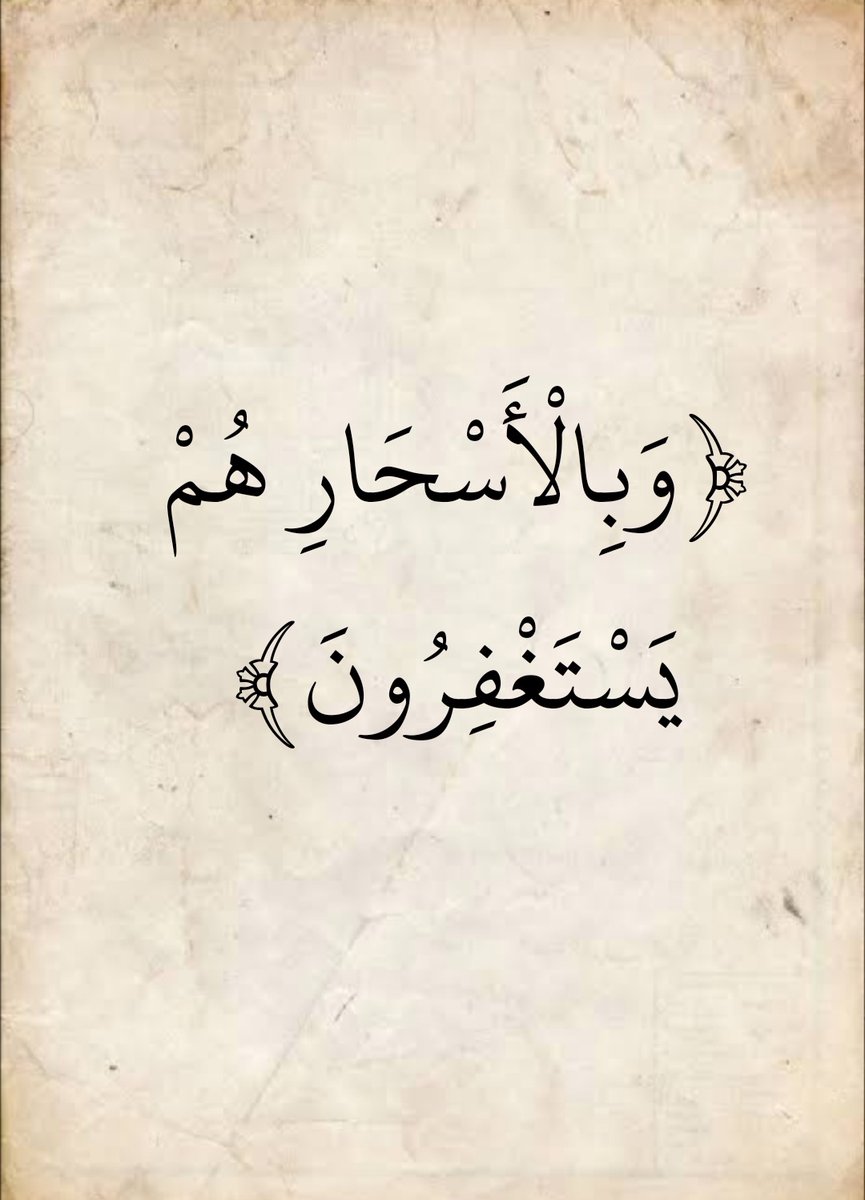 ﴿وَبِالْأَسْحَارِ هُمْ
يَسْتَغْفِرُونَ﴾